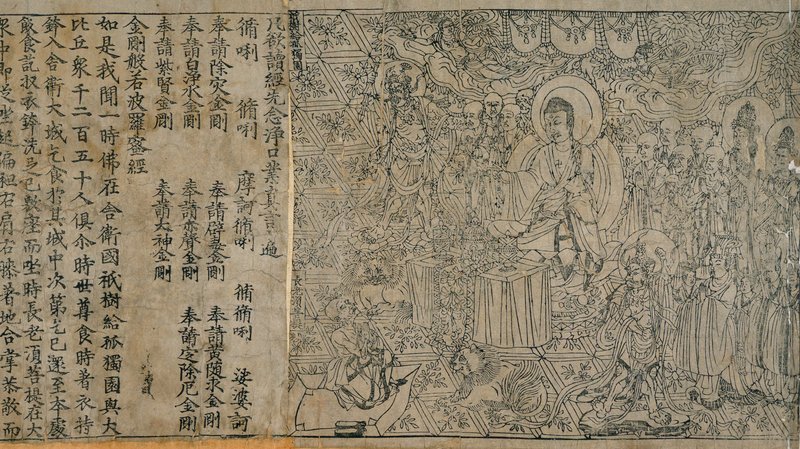 祇樹給孤獨園
長老須菩提
凡欲讀經先念淨口業真言一遍
脩唎 脩唎 摩訶脩唎 脩脩唎 娑婆訶
奉請除灾金剛 奉請辟毒金剛 奉請黃隨求金剛
奉請白淨水金剛 奉請赤聲金剛 奉請定除厄金剛
奉請紫賢金剛 奉請大神金剛
金剛般若波羅蜜經
如是我聞一時佛在舍衛國祇樹給孤獨園與大
比丘眾千二百五十人俱尒時世尊食時著衣持
鉢入舍衛大城乞食於其城中次第乞已還至本處
飯食訖收衣鉢洗足已敷座而坐時長老須菩提在大
眾中即從座起偏袒右肩右膝著地合掌恭敬而